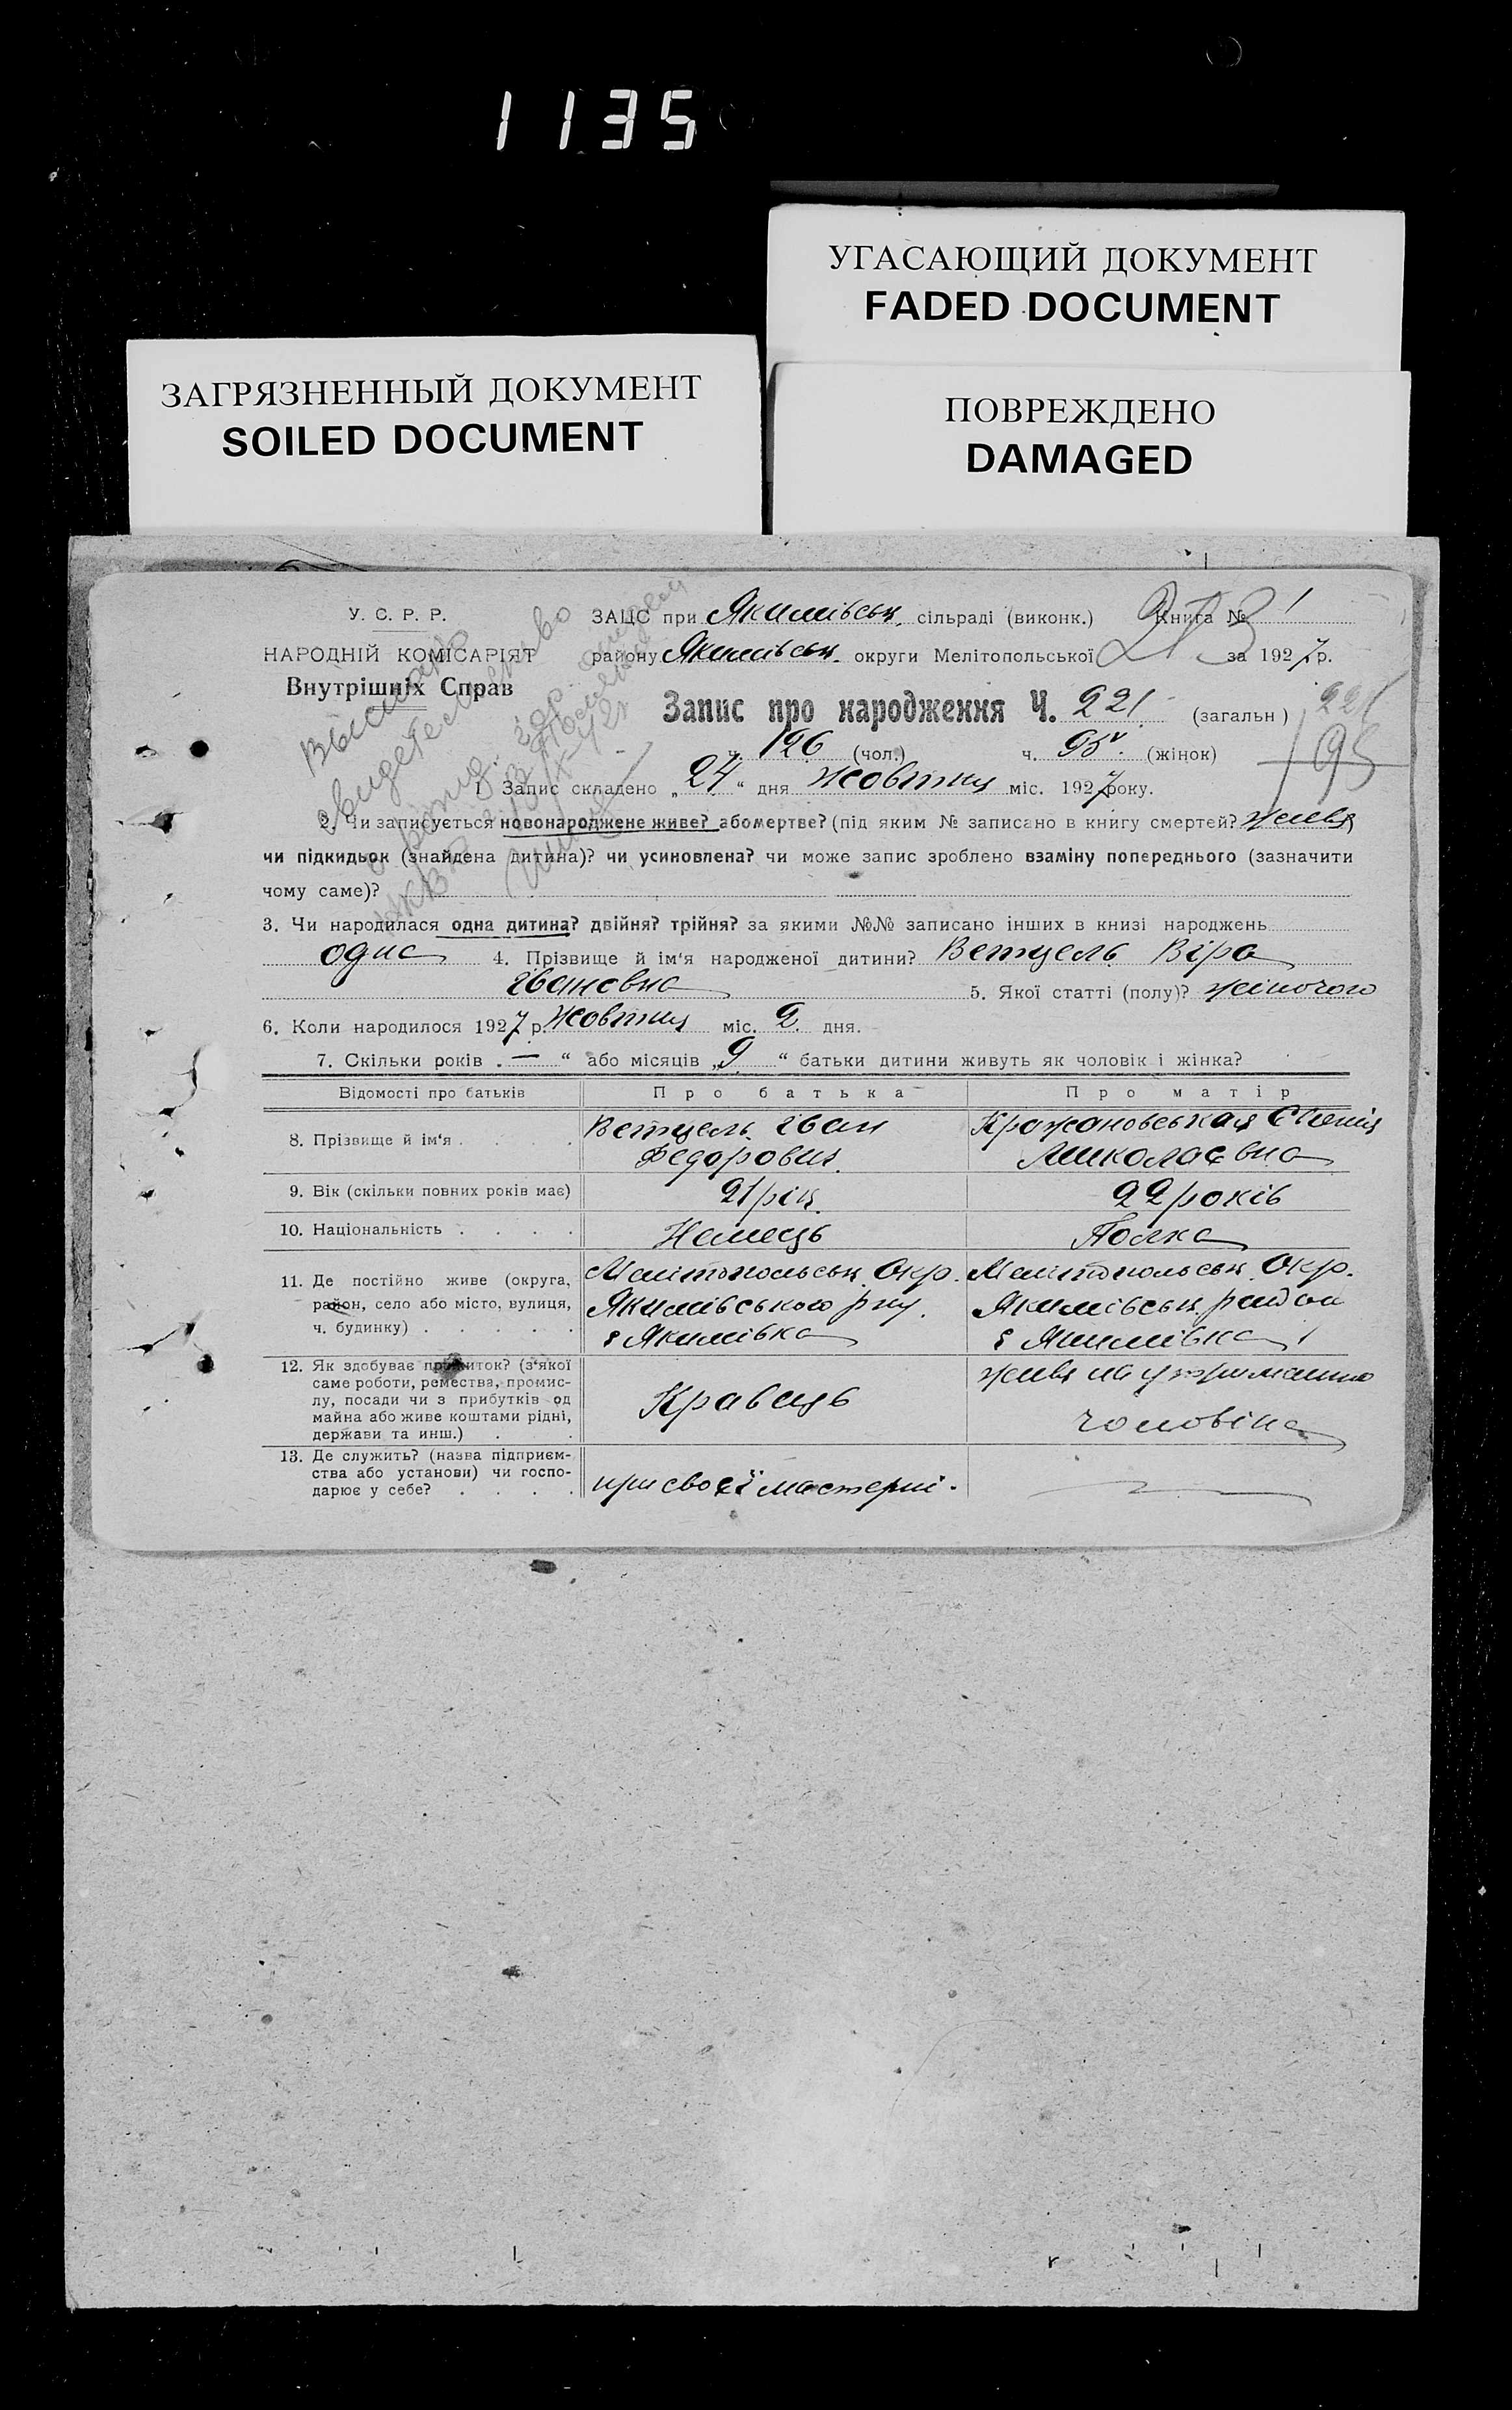 1135
УГАСАЮЩИЙ ДОКУМЕНТ
FADED DOCUMENT
ЗАГРЯЗНЕННЫЙ ДОКУМЕНТ
SOILED DOCUMENT
ПОВРЕЖДЕНО
DAMAGED
У. С. Р. Р.
НАРОДНІЙ КОМІСАРІЯТ
Внутрішніх Справ
ЗАЦС при Якимівськ. сільраді (виконк.) Книга № 1
району Якимівськ. округи Мелітопольської за 1927 р.
213
Запис про народження Ч. 221 (загальн)
221
ч. 126 (чол.) ч. 95 (жінок)
95
1. Запис складено „24“ дня жовтня міс. 1927 року.
2. Чи записується новонароджене живе? або мертве? (під яким № записано в книгу смертей? живе)
чи підкидьок (знайдена дитина)? чи усиновлена? чи може запис зроблено взаміну попереднього (зазначити
чому саме)?
3. Чи народилася одна дитина? двійня? трійня? за якими №№ записано інших в книзі народжень
одна 4. Прізвище й ім'я народженої дитини? Ветцель Віра
Івановна 5. Якої статті (полу)? жіночого
6. Коли народилося 1927 р. жовтня міс. 2 дня.
7. Скільки років . — “ або місяців „9“ батьки дитини живуть як чоловік і жінка?
Відомості про батьків Про батька Про матір
8. Прізвище й ім'я Ветцель Іван Кражановськая Євгенія
Федорович Миколаєвна
9. Вік (скільки повних років має) 21 рік. 22 років
10. Національність Немець Полка
11. Де постійно живе (округа, Мелітопольськ. Окр. Мелітопольськ. Окр.
район, село або місто, вулиця, Якимівського р-ну. Якимівськ. район
ч. будинку) с Якимівка с Якимівка
12. Як здобуває прожиток? (з'якої живе на утриманню
саме роботи, ремества, промис-
лу, посади чи з прибутків од Кравець
майна або живе коштами рідні, чоловіка
держави та инш.)
13. Де служить? (назва підприєм-
ства або установи) чи госпо- при своєї мастерні.
дарює у себе?
Выслано
свидетельство